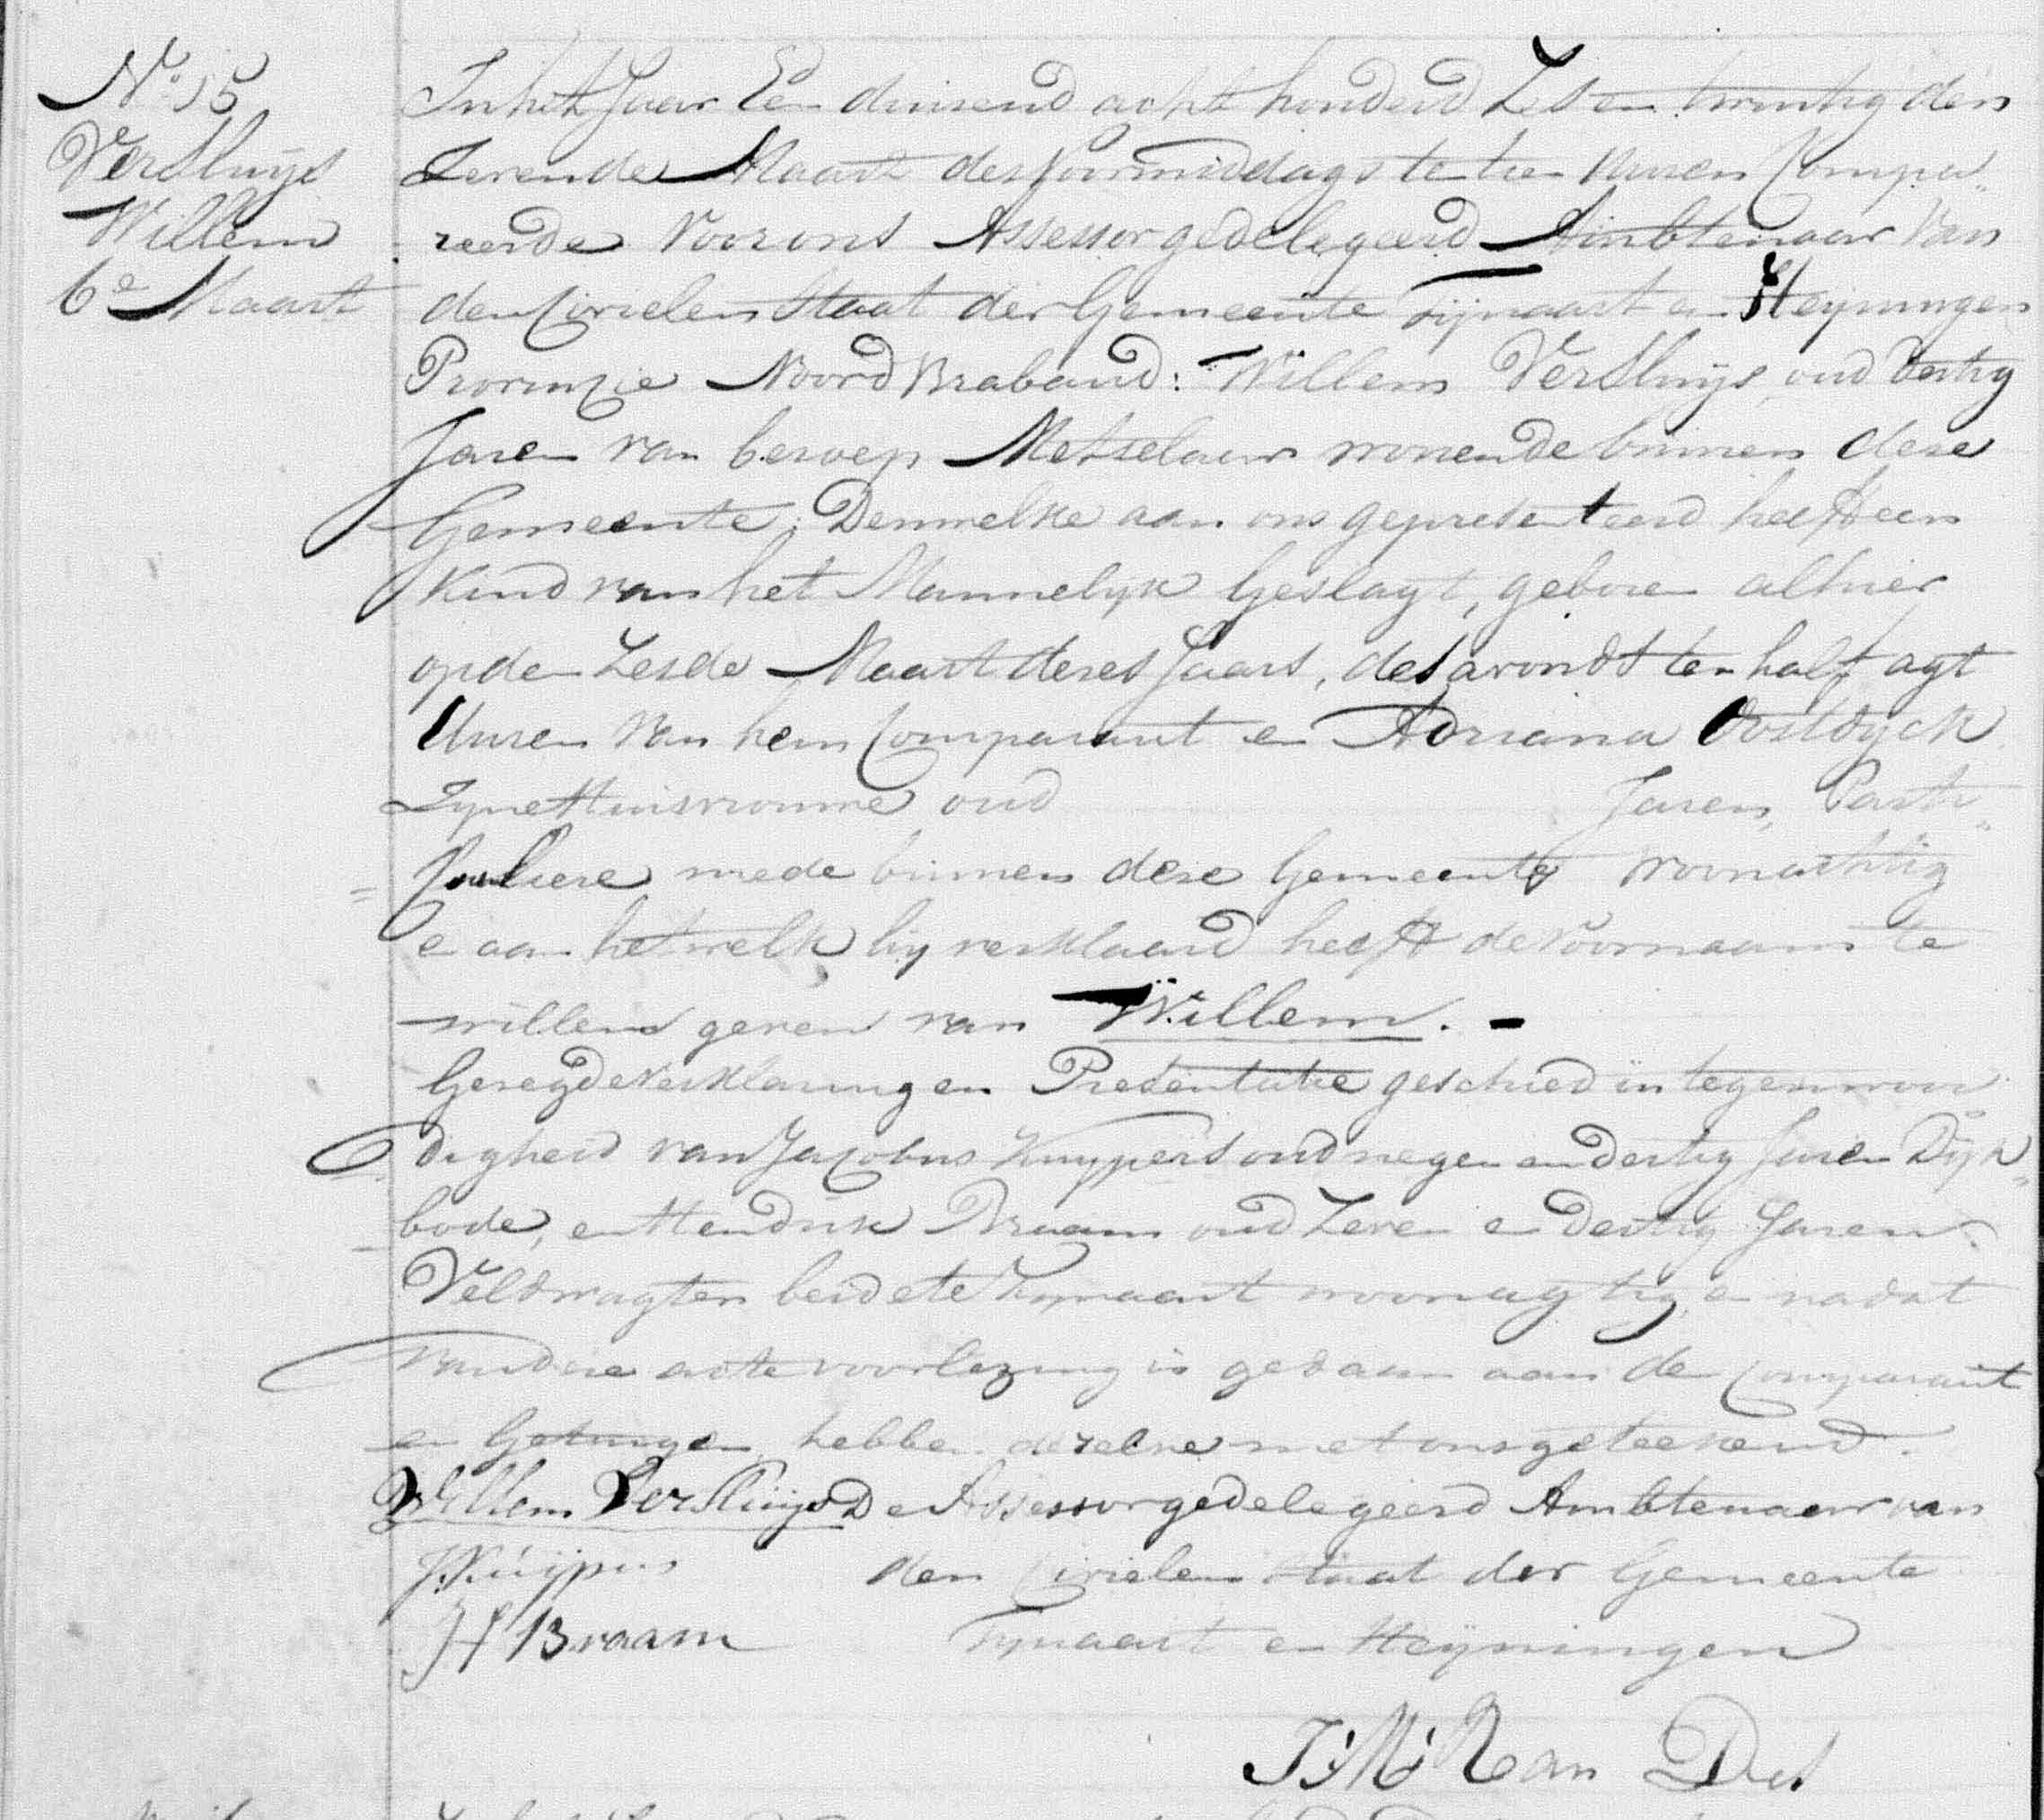 No. 15
VerSluijs
Willem
6e Maart
In het Jaar Een duisend acht honderd Zes en twintig den
Zevende Maart des voormiddags te tien Uuren Compa„
reerde voor ons Assessor gedelegeerd Ambtenaar van
den Civielen Staat der Gemeente Fijnaart en Heyningen
Provincie Noord Braband: Willem VerSluijs, oud dertig
Jaren van beroep Metselaar wonende binnen dese
Gemeente; Denwelke aan ons gepresenteerd heeft een
Kind van het Mannelyk Geslagt, geboren alhier
op den Zesde Maart deses Jaars, des avonds ten half agt
Uuren van hem Comparant en Adriana Oostdyck
Zyne Huisvrouwe oud Jaren, Parti„
„culiere mede binnen dese Gemeente woonachtig
en aan hetwelk hij verklaard heeft de voornaam te
willen geven van Willem. -
Gesegde verklaring en Presentatie geschied in tegenwoor
digheid van Jacobus Kuypers oud negen en dertig Jaren Dijk„
bode, en Hendrik Braam oud Zeven en dertig Jaren
Veldwagter beide te Fynaart woonagtig, en na dat
van dese acte voorlezing is gedaan aan de Comparant
en Getuigen hebben deselve met ons geteekend.
Willem VerSluijs De Assessor gedelegeerd Ambtenaar van
J. Kuijpers den Civielen Staat der Gemeente
H Braam Fynaart en Heyningen
J: M: Van Des